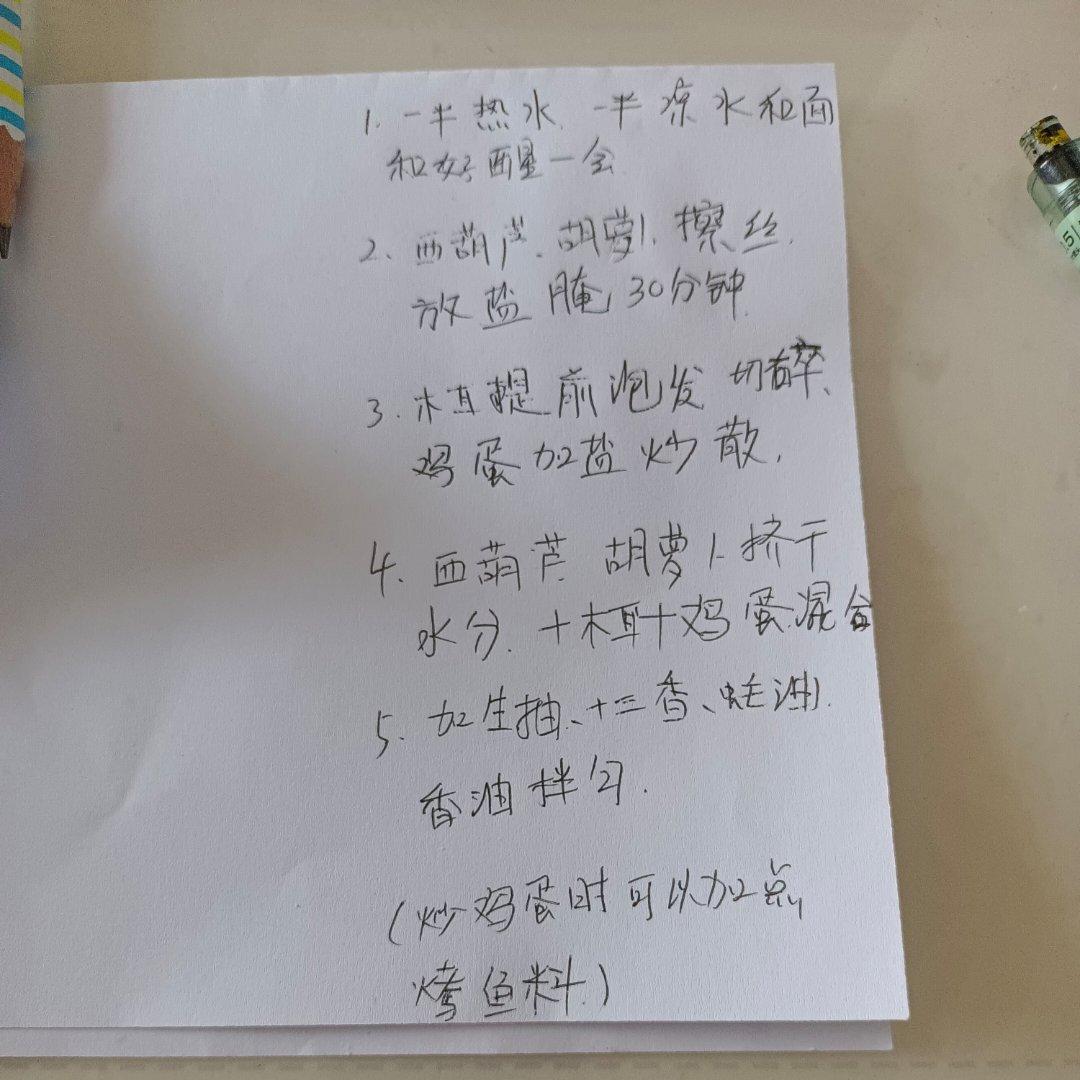 1. 一半热水、一半凉水和面
和好醒一会
2. 西葫芦、胡萝卜、擦丝、
放盐腌30分钟
3. 木耳提前泡发 切碎、
鸡蛋加盐炒散，
4. 西葫芦 胡萝卜挤干
水分、+木耳+鸡蛋混合
5. 加生抽、十三香、蚝油、
香油拌匀.
(炒鸡蛋时可以加点
烤鱼料)